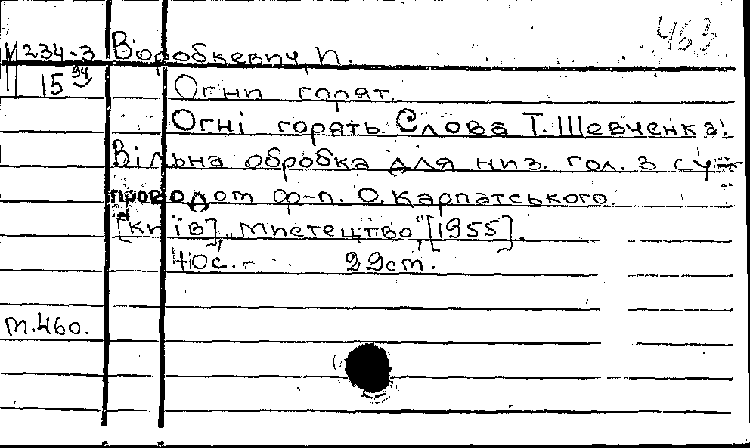 463
М 234-3 Воробкевич, И.
15
Огни горят.
Огні горять. Слова Т. Шевченка.
Вільна обробка для низ. гол. з су-
проводом ф-п. О. Карпатського.
[Київ], "Мистецтво", [1955].
4 с. 29 см.
т. 460.